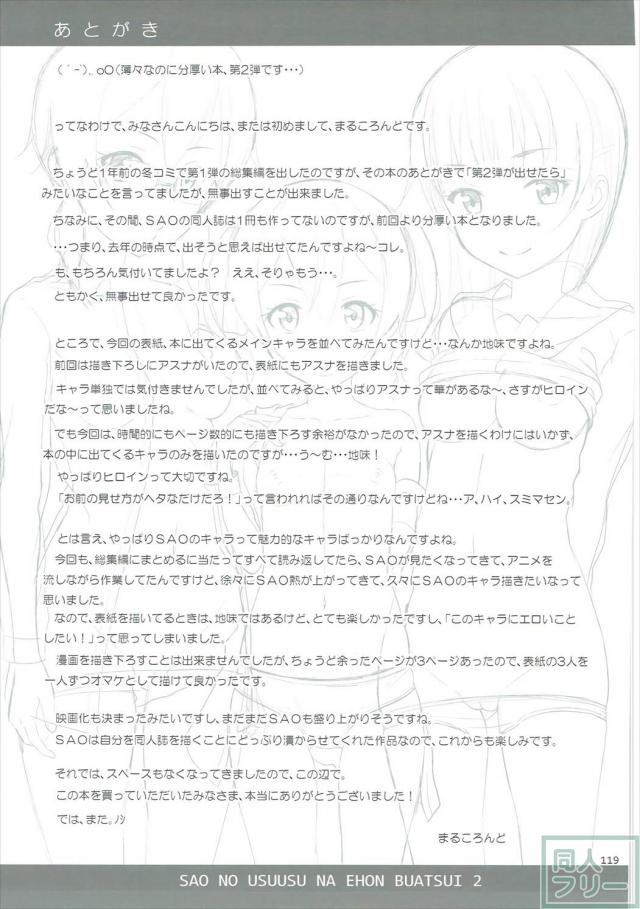 あとがき
(´-`).｡oO(薄々なのに分厚い本、第2弾です･･･)
ってなわけで、みなさんこんにちは、または初めまして、まるころんどです。
ちょうど1年前の冬コミで第1弾の総集編を出したのですが、その本のあとがきで「第2弾が出せたら」
みたいなことを言ってましたが、無事出すことが出来ました。
ちなみに、その間、SAOの同人誌は1冊も作ってないのですが、前回より分厚い本となりました。
･･･つまり、去年の時点で、出そうと思えば出せてたんですよね～コレ。
も、もちろん気付いてましたよ？ ええ、そりゃもう･･･。
ともかく、無事出せて良かったです。
ところで、今回の表紙、本に出てくるメインキャラを並べてみたんですけど･･･なんか地味ですよね。
前回は描き下ろしにアスナがいたので、表紙にもアスナを描きました。
キャラ単独では気付きませんでしたが、並べてみると、やっぱりアスナって華があるな～、さすがヒロイン
だな～って思いましたね。
でも今回は、時間的にもページ数的にも描き下ろす余裕がなかったので、アスナを描くわけにはいかず、
本の中に出てくるキャラのみを描いたのですが･･･う～む･･･地味！
やっぱりヒロインって大切ですね。
「お前の見せ方がヘタなだけだろ！」って言われればその通りなんですけどね･･･ア、ハイ、スミマセン。
とは言え、やっぱりSAOのキャラって魅力的なキャラばっかりなんですよね。
今回も、総集編にまとめるに当たってすべて読み返してたら、SAOが見たくなってきて、アニメを
流しながら作業してたんですけど、徐々にSAO熱が上がってきて、久々にSAOのキャラ描きたいなって
思いました。
なので、表紙を描いてるときは、地味ではあるけど、とても楽しかったですし、「このキャラにエロいこと
したい！」って思ってしまいました。
漫画を描き下ろすことは出来ませんでしたが、ちょうど余ったページが3ページあったので、表紙の3人を
一人ずつオマケとして描けて良かったです。
映画化も決まったみたいですし、まだまだSAOも盛り上がりそうですね。
SAOは自分を同人誌を描くことにどっぷり漬からせてくれた作品なので、これからも楽しみです。
それでは、スペースもなくなってきましたので、この辺で。
この本を買っていただいたみなさま、本当にありがとうございました！
では、また。ﾉｼ
まるころんど
119
SAO NO USUUSU NA EHON BUATSUI 2
同人
フリー